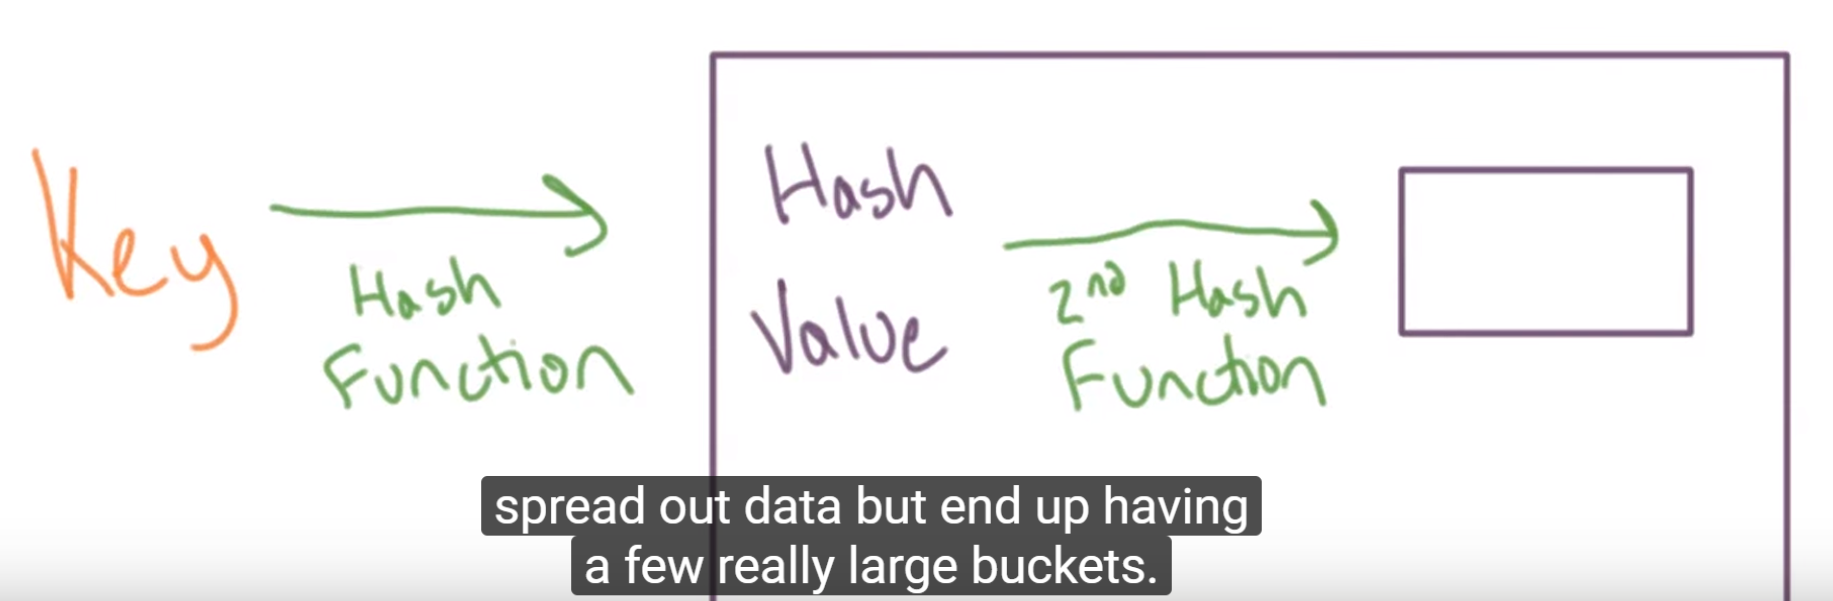 Key
Hash
Function
Hash
Value
2nd Hash
Function
spread out data but end up having
a few really large buckets.